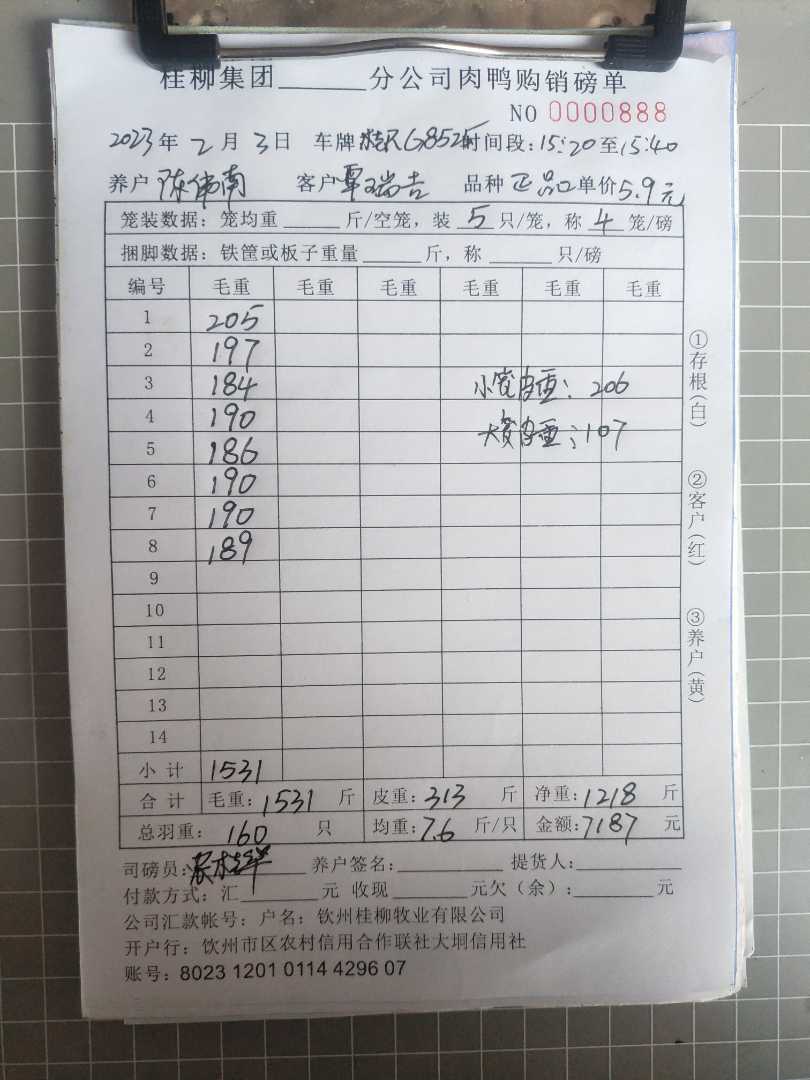 桂柳集团______分公司肉鸭购销磅单
NO 0000888
2023年2月3日 车牌 时间段:15:20至15:40
养户 陈伟南 客户 覃瑞吉 品种 正品 单价5.9元
笼装数据：笼均重______斤/空笼，装 5 只/笼，称 4 笼/磅
捆脚数据：铁筐或板子重量______斤，称______只/磅
编号 毛重 毛重 毛重 毛重 毛重 毛重
1 205
2 197
3 184 小笼皮重：206
4 190 大笼皮重：107
5 186
6 190
7 190
8 189
9
10
11
12
13
14
小计 1531
合计 毛重：1531 斤 皮重：313 斤 净重：1218 斤
总羽重：160 只 均重：7.6 斤/只 金额：7187 元
司磅员： 养户签名：______ 提货人：______
付款方式：汇______元 收现______元欠（余）：______元
公司汇款帐号：户名：钦州桂柳牧业有限公司
开户行：钦州市区农村信用合作联社大垌信用社
账号：8023 1201 0114 4296 07
①存根（白）
②客户（红）
③养户（黄）